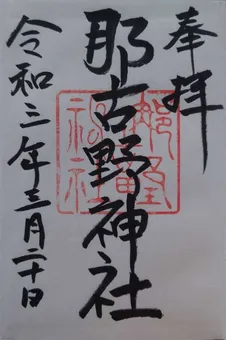 奉拝
那古野神社
令和三年三月二十日